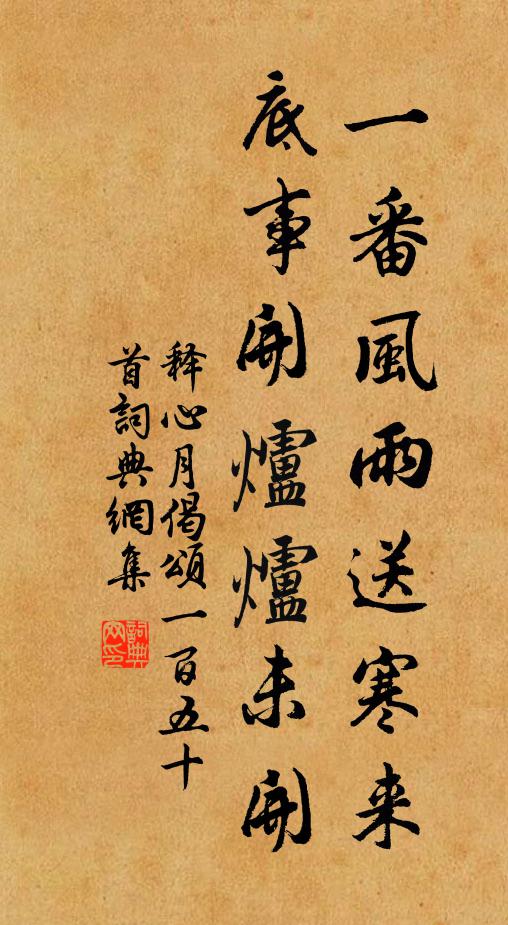 一番風雨送寒来
底事開爐爐未開
释心月偈頌一百五十
首詞典網集
詞典
网印